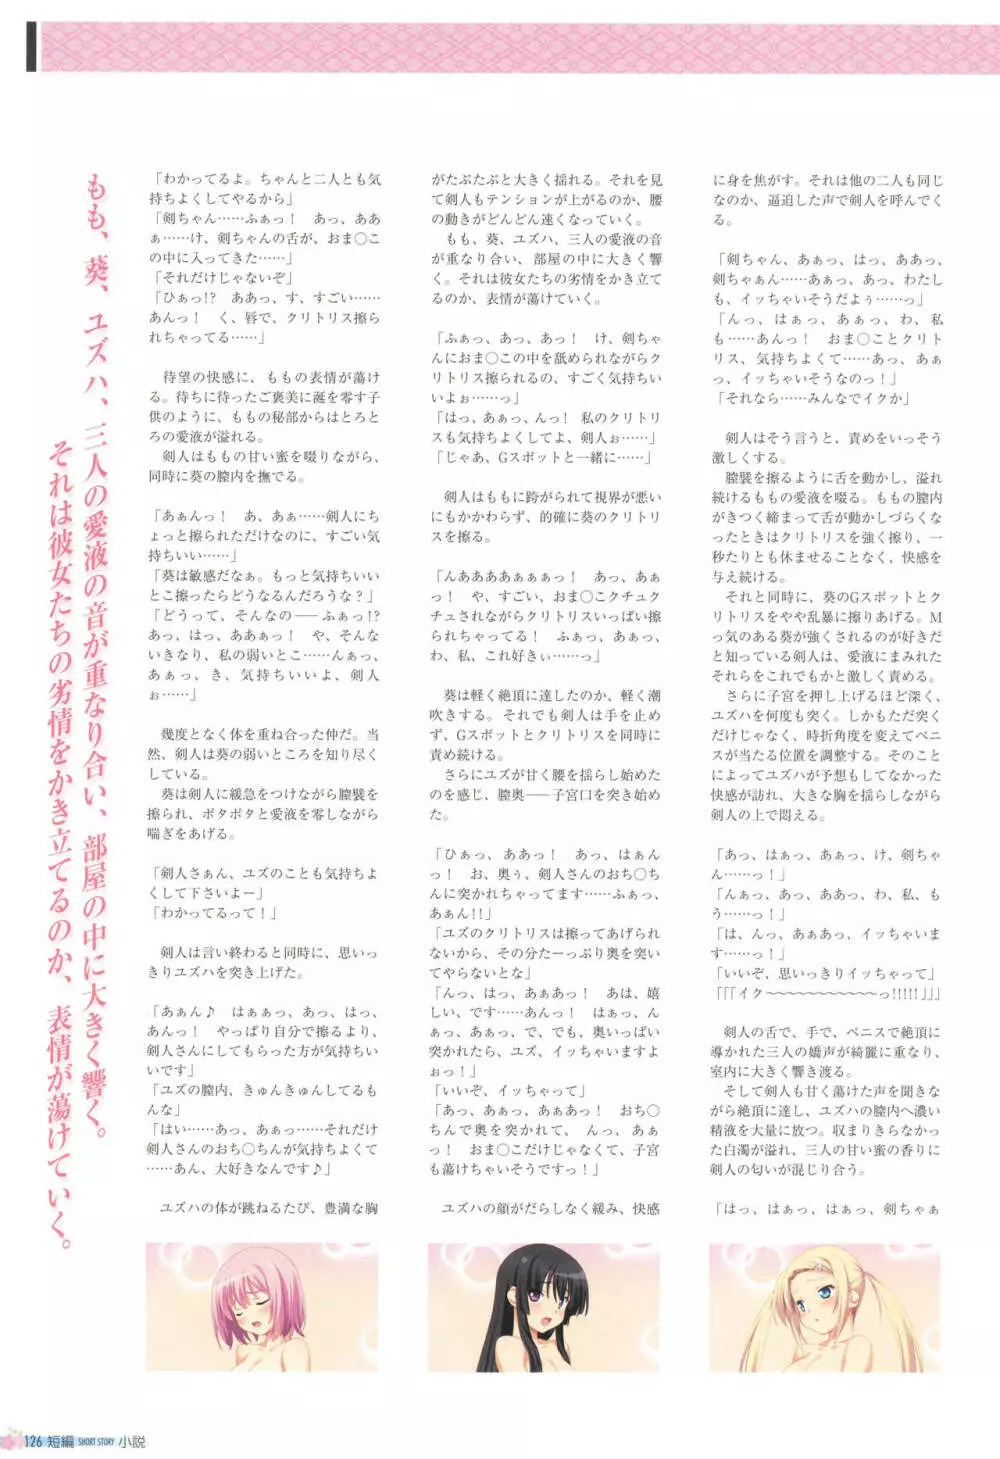 もも、葵、ユズハ、三人の愛液の音が重なり合い、部屋の中に大きく響く。
それは彼女たちの劣情をかき立てるのか、表情が蕩けていく。
「わかってるよ。ちゃんと二人とも気
持ちよくしてやるから」
「剣ちゃん……ふぁっ！　あっ、ああ
ぁ……け、剣ちゃんの舌が、おま〇こ
の中に入ってきた……」
「それだけじゃないぞ」
「ひぁっ!?　ああっ、す、すごい……
あんっ！　く、唇で、クリトリス擦ら
れちゃってる……」
待望の快感に、ももの表情が蕩け
る。待ちに待ったご褒美に涎を零す子
供のように、ももの秘部からはとろと
ろの愛液が溢れる。
剣人はももの甘い蜜を啜りながら、
同時に葵の膣内を撫でる。
「あぁんっ！　あ、あぁ……剣人にち
ょっと擦られただけなのに、すごい気
持ちいい……」
「葵は敏感だなぁ。もっと気持ちいい
とこ擦ったらどうなるんだろうな？」
「どうって、そんなの――ふぁっ!?
あっ、はっ、ああぁっ！　や、そんな
いきなり、私の弱いとこ……んぁっ、
あぁっ、き、気持ちいいよ、剣人
ぉ……」
幾度となく体を重ね合った仲だ。当
然、剣人は葵の弱いところを知り尽く
している。
葵は剣人に緩急をつけながら膣襞を
擦られ、ポタポタと愛液を零しながら
喘ぎをあげる。
「剣人さぁん、ユズのことも気持ちよ
くして下さいよー」
「わかってるって！」
剣人は言い終わると同時に、思いっ
きりユズハを突き上げた。
「あぁん♪　はぁぁっ、あっ、はっ、
あんっ！　やっぱり自分で擦るより、
剣人さんにしてもらった方が気持ちい
いです」
「ユズの膣内、きゅんきゅんしてるも
んな」
「はい……あっ、あぁっ……それだけ
剣人さんのおち〇ちんが気持ちよくて
……あん、大好きなんです♪」
ユズハの体が跳ねるたび、豊満な胸
がたぷたぷと大きく揺れる。それを見
て剣人もテンションが上がるのか、腰
の動きがどんどん速くなっていく。
もも、葵、ユズハ、三人の愛液の音
が重なり合い、部屋の中に大きく響
く。それは彼女たちの劣情をかき立て
るのか、表情が蕩けていく。
「ふぁっ、あっ、あっ！　け、剣ちゃ
んにおま〇この中を舐められながらク
リトリス擦られるの、すごく気持ちい
いよぉ……っ」
「はっ、あぁっ、んっ！　私のクリトリ
スも気持ちよくしてよ、剣人ぉ……」
「じゃあ、Gスポットと一緒に……」
剣人はももに跨がられて視界が悪い
にもかかわらず、的確に葵のクリトリ
スを擦る。
「んああああぁぁぁっ！　あっ、あぁ
っ！　や、すごい、おま〇こクチュク
チュされながらクリトリスいっぱい擦
られちゃってる！　ふぁっ、あぁっ、
わ、私、これ好きぃ……っ」
葵は軽く絶頂に達したのか、軽く潮
吹きする。それでも剣人は手を止め
ず、Gスポットとクリトリスを同時に
責め続ける。
さらにユズが甘く腰を揺らし始めた
のを感じ、膣奥――子宮口を突き始め
た。
「ひぁっ、ああっ！　あっ、はぁん
っ！　お、奥ぅ、剣人さんのおち〇ち
んに突かれちゃってます……ふぁっ、
あぁん!!」
「ユズのクリトリスは擦ってあげられ
ないから、その分たーっぷり奥を突い
てやらないとな」
「んっ、はっ、あぁあっ！　あは、嬉
しい、です……あんっ！　はぁっ、ん
ぁっ、あぁっ、で、でも、奥いっぱい
突かれたら、ユズ、イッちゃいますよ
ぉっ！」
「いいぞ、イッちゃって」
「あっ、あぁっ、あぁあっ！　おち〇
ちんで奥を突かれて、んっ、あぁ
っ！　おま〇こだけじゃなくて、子宮
も蕩けちゃいそうですっ！」
ユズハの顔がだらしなく緩み、快感
に身を焦がす。それは他の二人も同じ
なのか、逼迫した声で剣人を呼んでく
る。
「剣ちゃん、あぁっ、はっ、ああっ、
剣ちゃぁん……あぁっ、あっ、わたし
も、イッちゃいそうだよぅ……っ」
「んっ、はぁっ、あぁっ、わ、私
も……あんっ！　おま〇ことクリト
リス、気持ちよくて……あっ、あぁ
っ、イッちゃいそうなのっ！」
「それなら……みんなでイクか」
剣人はそう言うと、責めをいっそう
激しくする。
膣襞を擦るように舌を動かし、溢れ
続けるももの愛液を啜る。ももの膣内
がきつく締まって舌が動かしづらくな
ったときはクリトリスを強く擦り、一
秒たりとも休ませることなく、快感を
与え続ける。
それと同時に、葵のGスポットとク
リトリスをやや乱暴に擦りあげる。M
っ気のある葵が強くされるのが好きだ
と知っている剣人は、愛液にまみれた
それらをこれでもかと激しく責める。
さらに子宮を押し上げるほど深く、
ユズハを何度も突く。しかもただ突く
だけじゃなく、時折角度を変えてペニ
スが当たる位置を調整する。そのこと
によってユズハが予想もしてなかった
快感が訪れ、大きな胸を揺らしながら
剣人の上で悶える。
「あっ、はぁっ、あぁっ、け、剣ちゃ
ん……っ！」
「んぁっ、あっ、ああっ、わ、私、も
う……っ！」
「は、んっ、あぁあっ、イッちゃいま
す……っ！」
「いいぞ、思いっきりイッちゃって」
「「「イク～～～～～～～～～～～っ!!!!!」」」
剣人の舌で、手で、ペニスで絶頂に
導かれた三人の嬌声が綺麗に重なり、
室内に大きく響き渡る。
そして剣人も甘く蕩けた声を聞きな
がら絶頂に達し、ユズハの膣内へ濃い
精液を大量に放つ。収まりきらなかっ
た白濁が溢れ、三人の甘い蜜の香りに
剣人の匂いが混じり合う。
「はっ、はぁっ、はぁっ、剣ちゃぁ
126 短編 SHORT STORY 小説